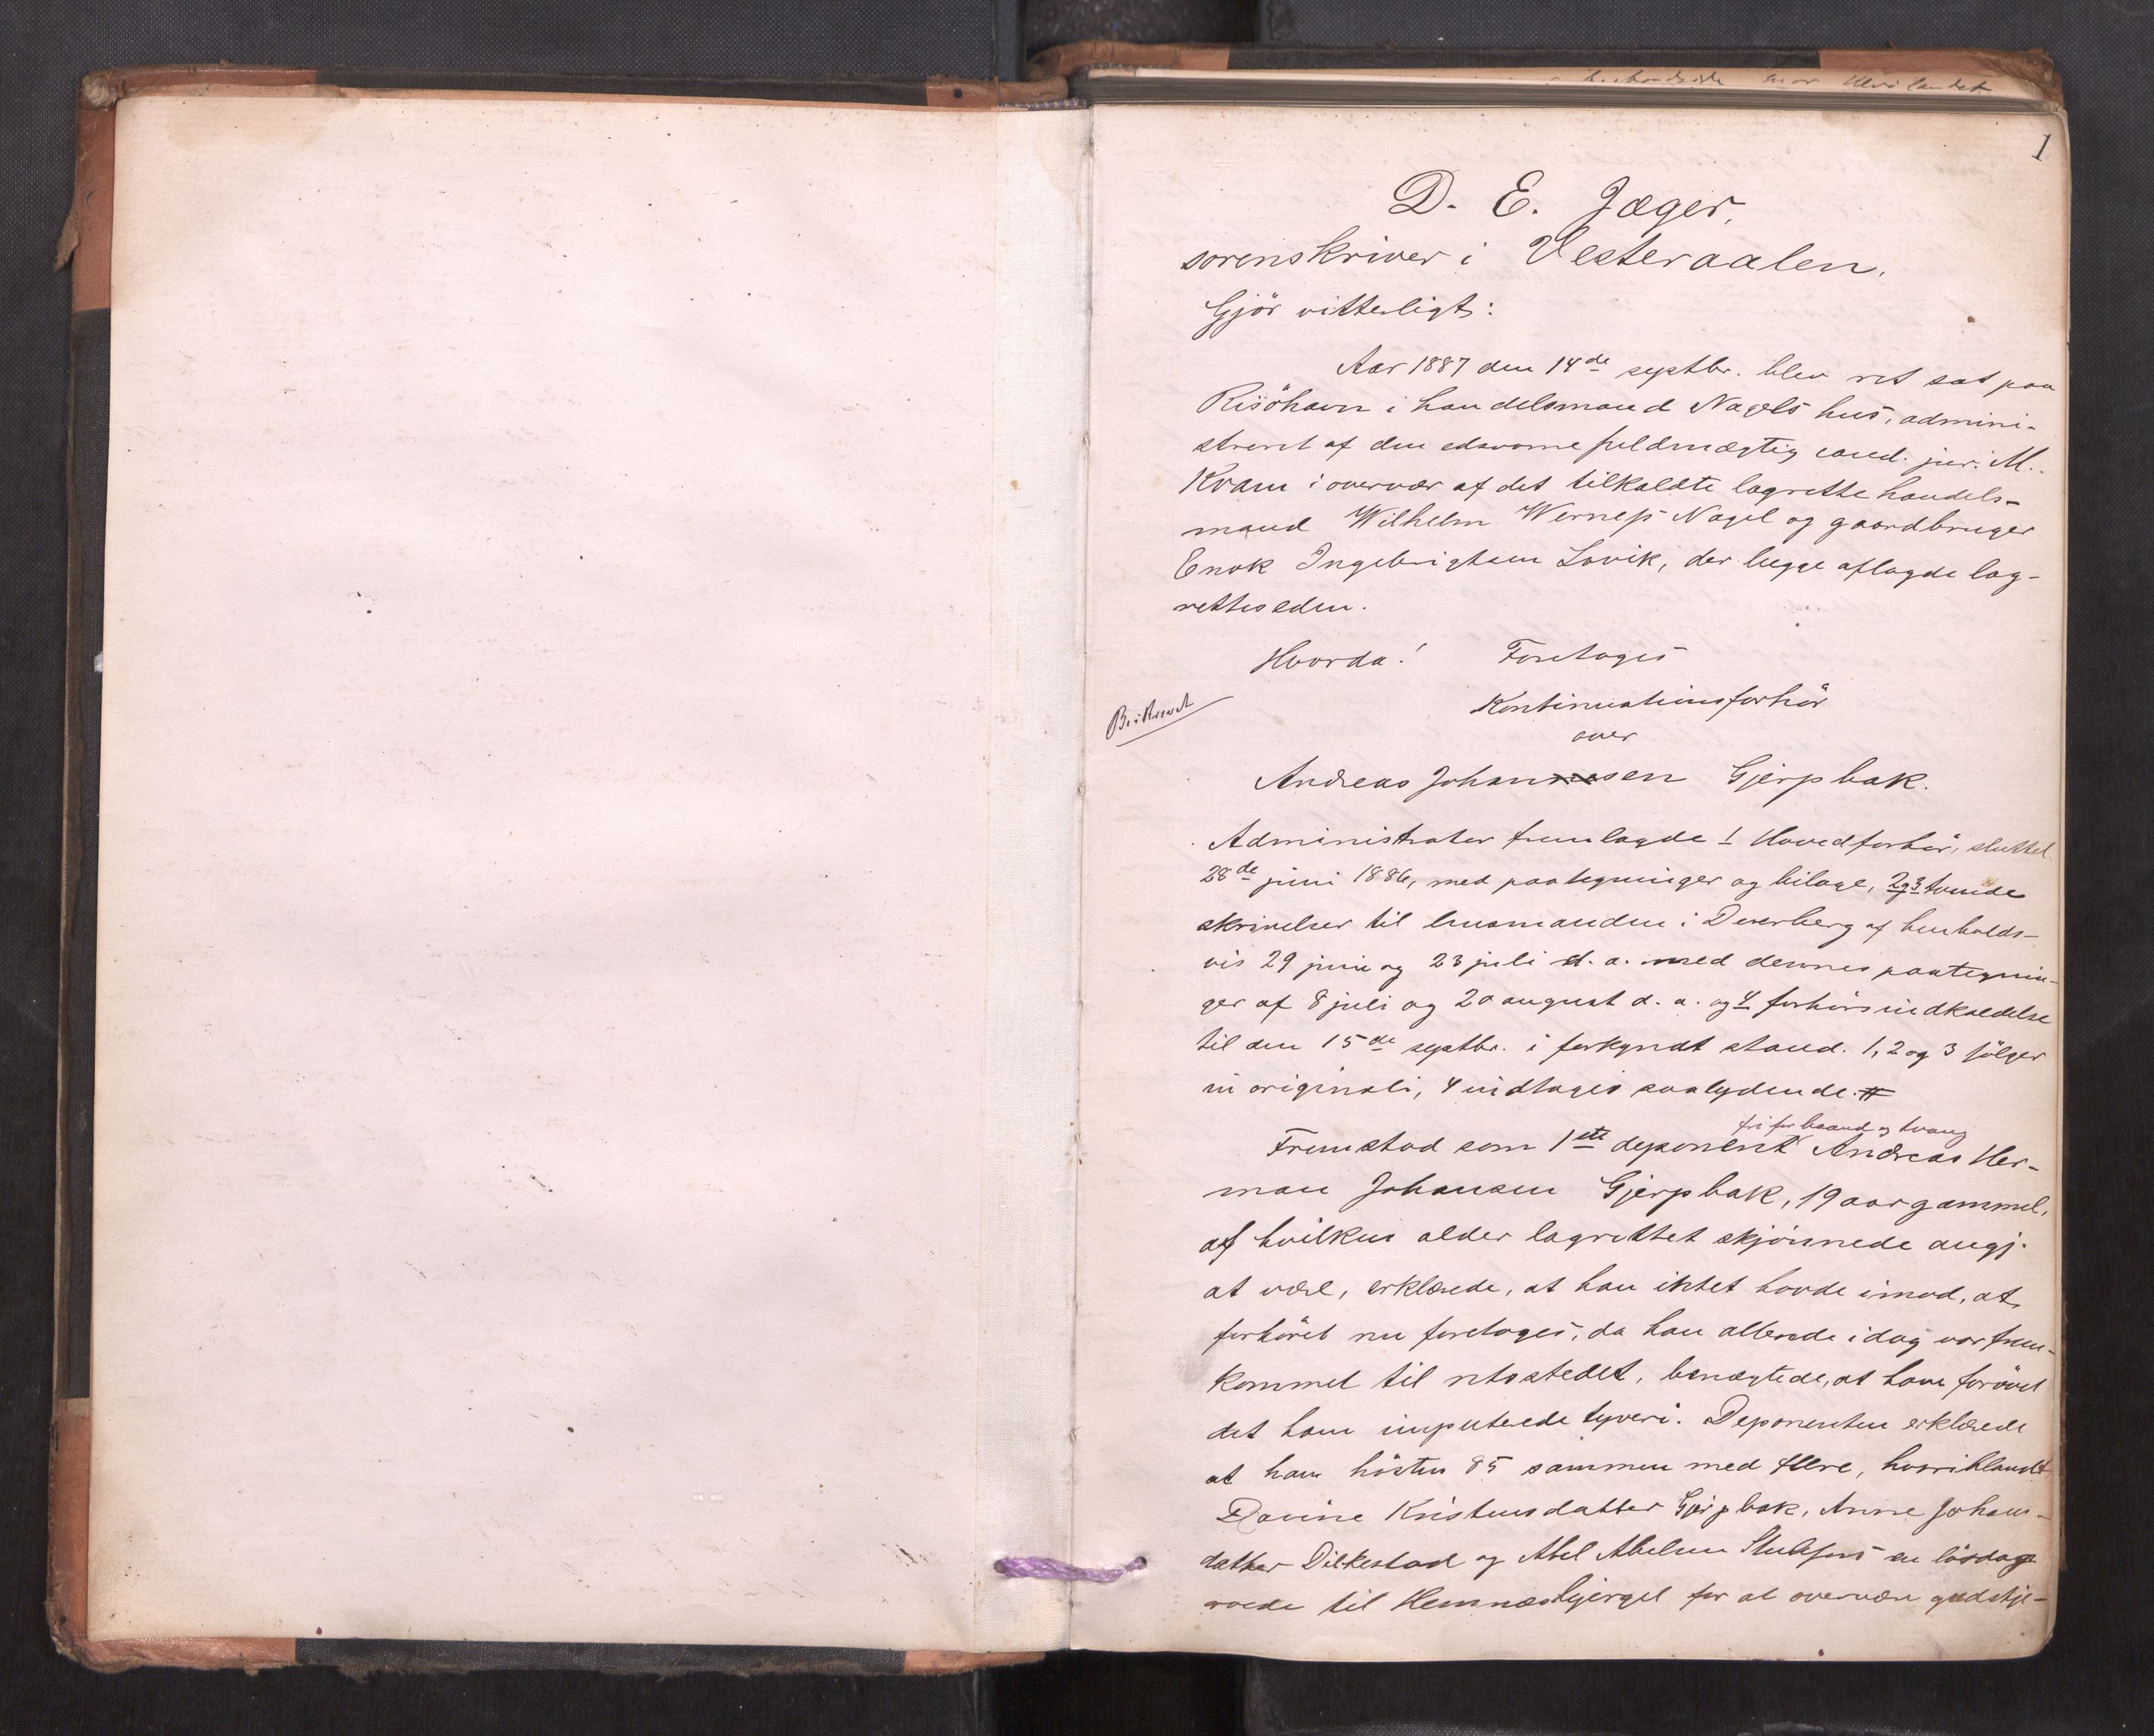 1
D. E. Jæger,
sorenskriver i Vesteraalen,
Gjör vitterligt:
Aar 1887 den 14de septbr. blev ret sat paa
Risöhavn i handelsmand Nagels hus, admini-
streret af den edsvorne fuldmægtig cand. jur. M.
Kvam i overvær af det tilkaldte lagrette handels-
mand Wilhelm Werness Nagel og gaardbruger
Enok Ingebrigtsen Lovik, der begge aflagde lag-
retteseden.
Hvorda! Foretoges
Kontinuationsforhör
over
Andreas Johansen Gjerpbak.
Administrator fremlagde 1 Hovedforhör, sluttet
28de juni 1886, med paategninger og bilage, 2 og 3 tvende
skrivelser til lensmanden i Dverberg af henholds-
vis 29 juni og 23 juli d. a. med dennes paategnin-
ger af 8 juli og 20 august d. a. og 4 forhörsindkaldelse
til den 15de septbr. i forkyndt stand. 1, 2 og 3 fölger
in originali, 4 indtages saalydende. #
fri for baand og tvang
Fremstod som 1ste deponent Andreas Her-
man Johansen Gjerpbak, 19 aar gammel,
af hvilken alder lagrettet skjönnede angj.
at være, erklærede, at han intet havde imod, at
forhöret nu foretoges, da han allerede idag var frem-
kommet til retsstedet, benægtede, at have forövet
det ham imputerede tyveri. Deponenten erklærede
at han hösten 85 sammen med flere, hvoriblandt
Davine Kristensdatter Gjerpbak, Anne Johans-
datter Dilkestad og Abel Abelsen en lördag
roede til Hemnæsbjerget for at overvære gudstje-